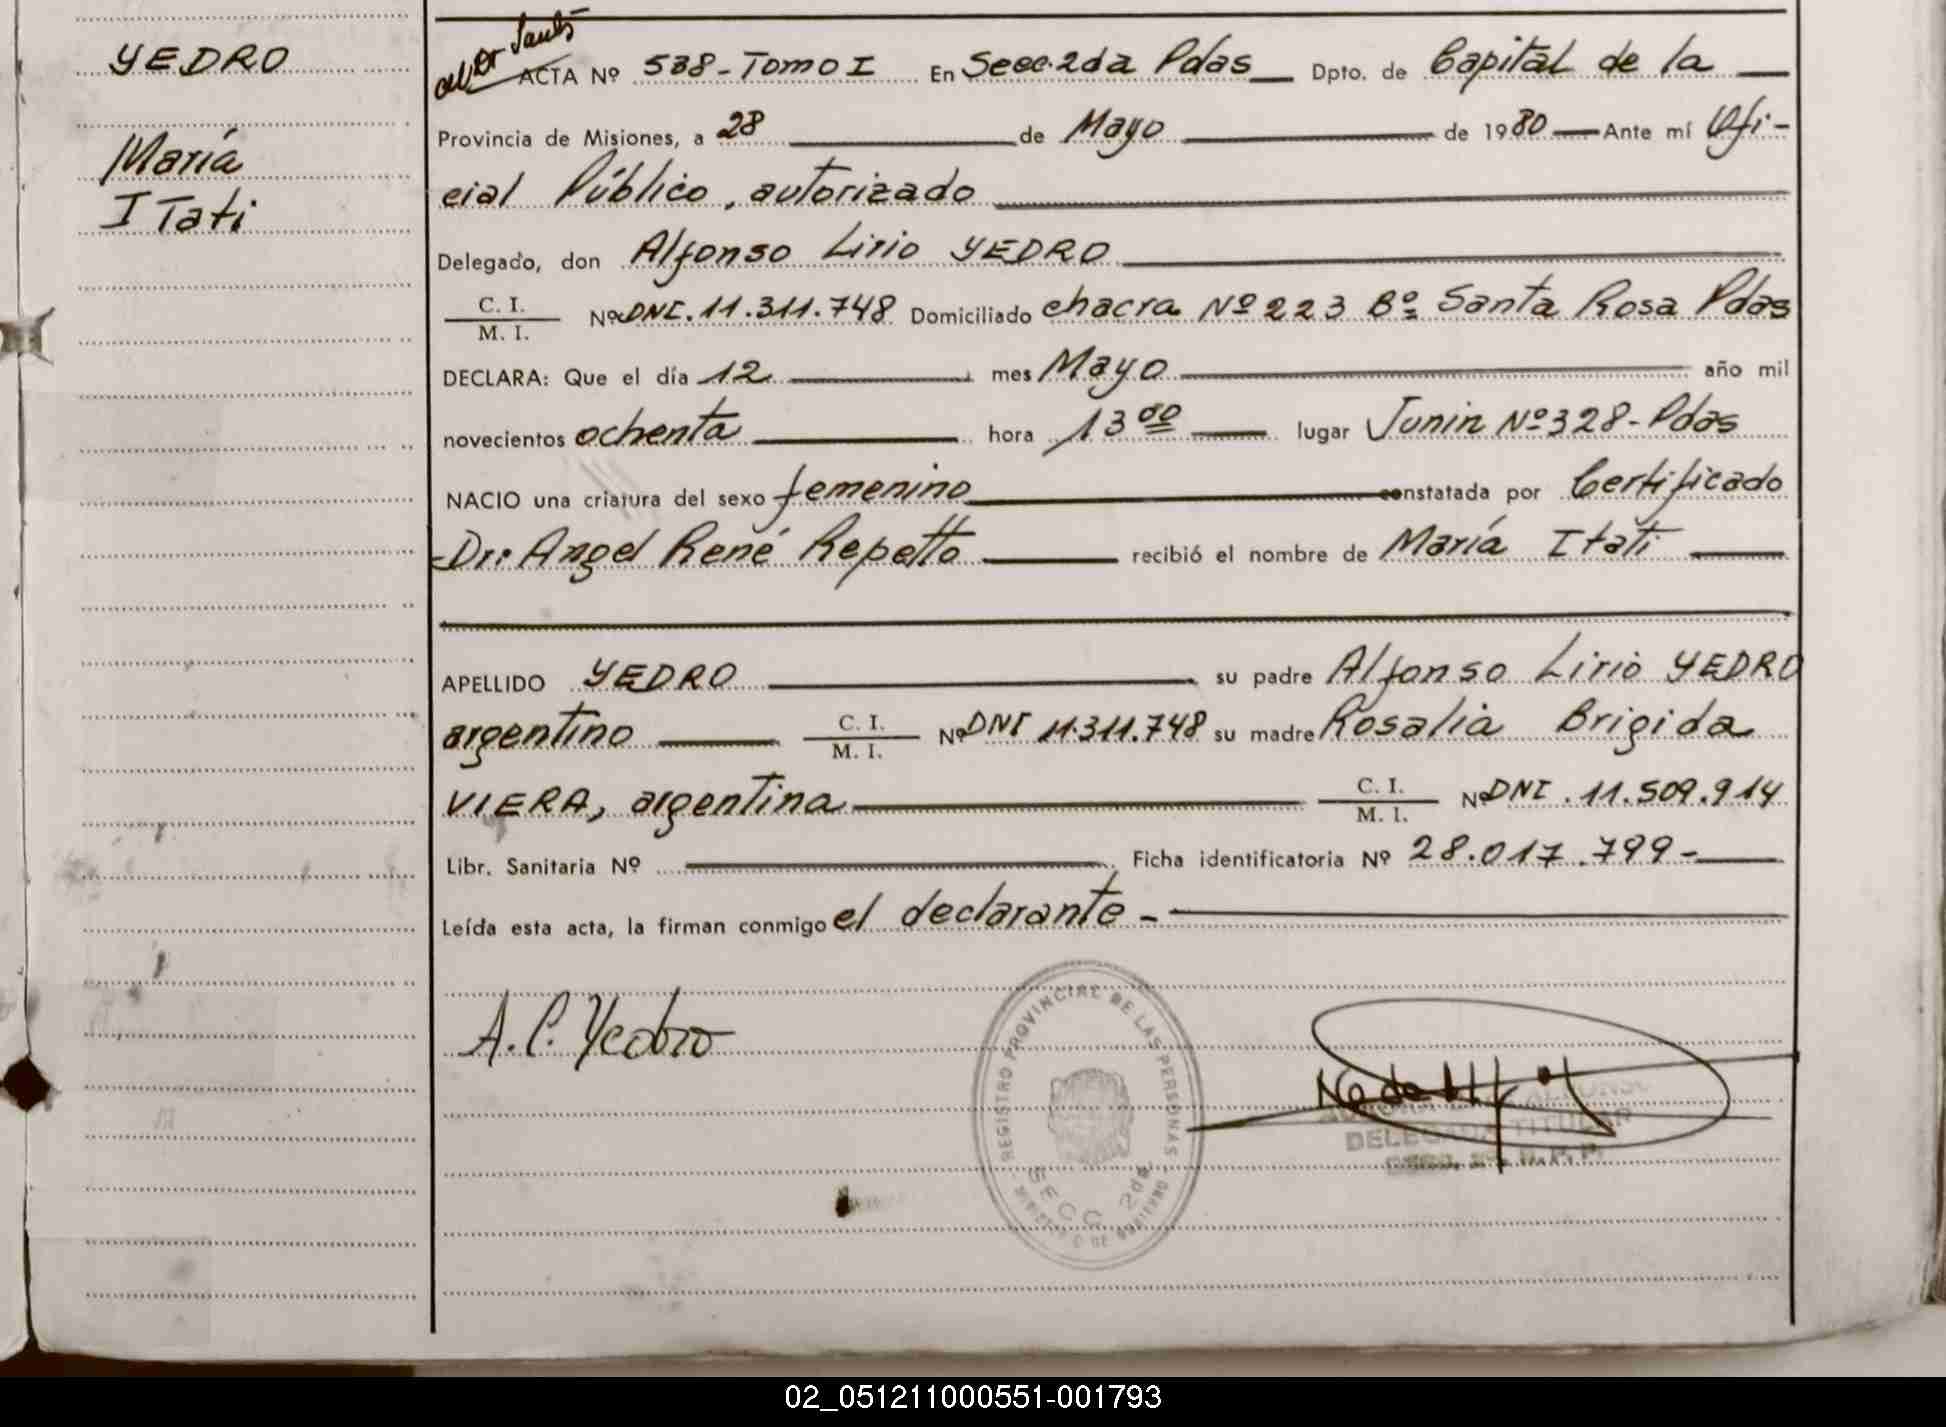 YEDRO
María
ITati
ACTA Nº 538-Tomo I En Secc. 2da Pdas Dpto. de Capital de la
Provincia de Misiones, a 28 de Mayo de 1980 Ante mí Ofi-
cial Público, autorizado
Delegado, don Alfonso Lirio YEDRO
C. I.
M. I.
Nº DNI. 11.311.748 Domiciliado chacra Nº 223 Bº Santa Rosa Pdas
DECLARA: Que el día 12 mes Mayo año mil
novecientos ochenta hora 13 00 lugar Junin Nº 328-Pdas
NACIO una criatura del sexo femenino constatada por Certificado
Dr: Angel René Repetto recibió el nombre de María Itatí
APELLIDO YEDRO su padre Alfonso Lirio YEDRO
argentino C. I. M. I. Nº DNI 11.311.748 su madre Rosalia Brigida
VIERA, argentina C. I. M. I. Nº DNI. 11.509.914
Libr. Sanitaria Nº Ficha identificatoria Nº 28.017.799-
Leída esta acta, la firman conmigo el declarante -
A. L. Yedro
REGISTRO PROVINCIAL DE LAS PERSONAS
SECC. 2da
DELEGADA TITULAR
02_051211000551-001793